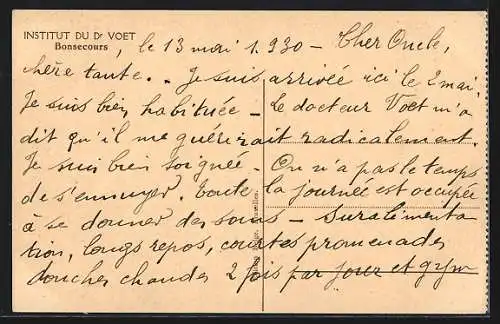 INSTITUT DU Dr VOET
Bonsecours, le 13 mai 1930 - Cher Oncle,
chère tante. - Je suis arrivée ici le 2 mai.
Je suis bien habituée - Le docteur Voet m'a
dit qu'il me guérirait radicalement.
Je suis bien soignée - On n'a pas le temps
de s'ennuyer. Toute la journée est occupée
à se donner des soins - suralimenta
tion, longs repos, courtes promenades
douches chaudes 2 fois par jour et gym